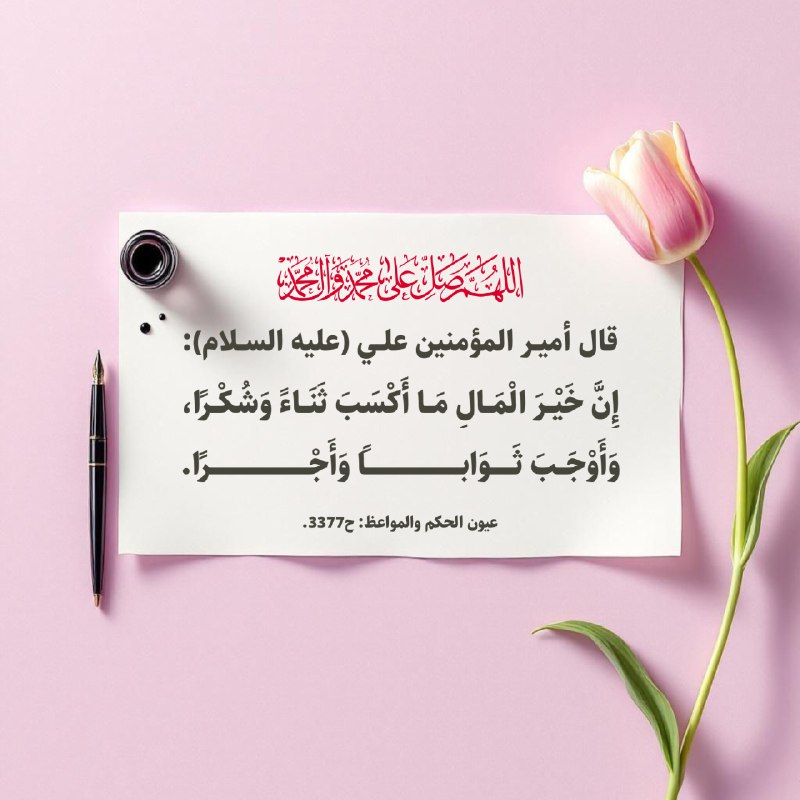 اللهم صل على محمد وآل محمد
قال أمير المؤمنين علي (عليه السلام):
إِنَّ خَيْرَ الْمَالِ مَا أَكْسَبَ ثَنَاءً وَشُكْرًا،
وَأَوْجَبَ ثَــوَابــــــــاً وَأَجْــــــــرًا.
عيون الحكم والمواعظ: ح3377.